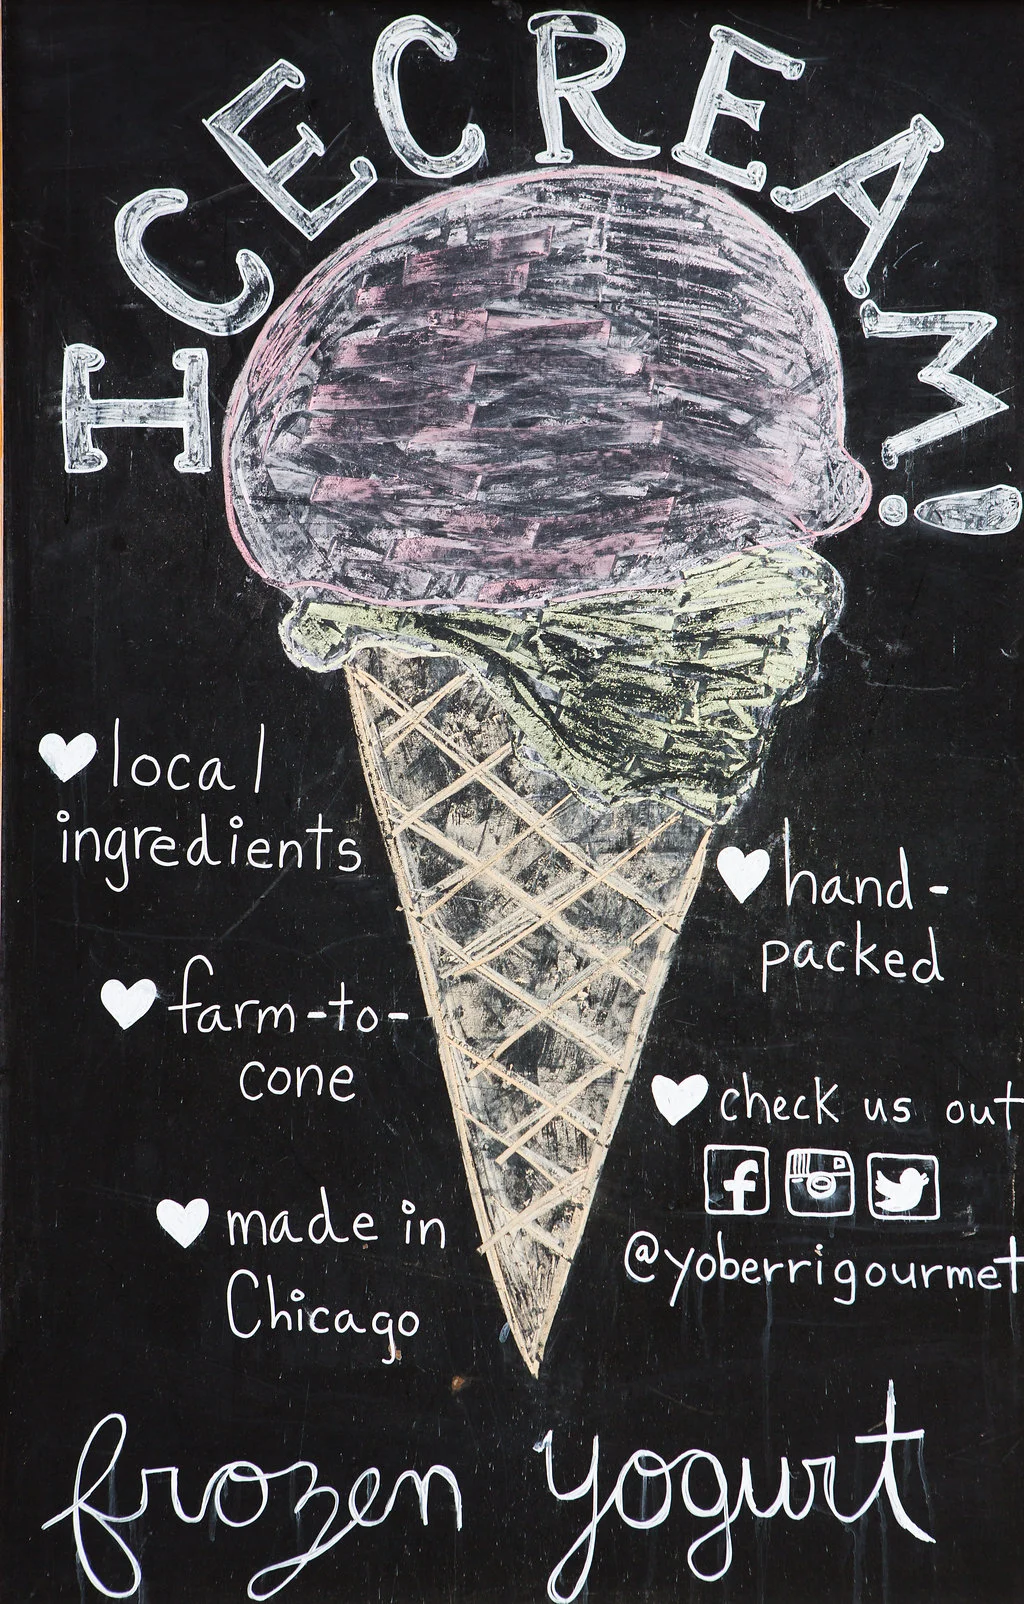 ICECREAM!
local
ingredients
farm-to-
cone
made in
Chicago
hand-
packed
check us out
@yoberrigourmet
frozen yogurt